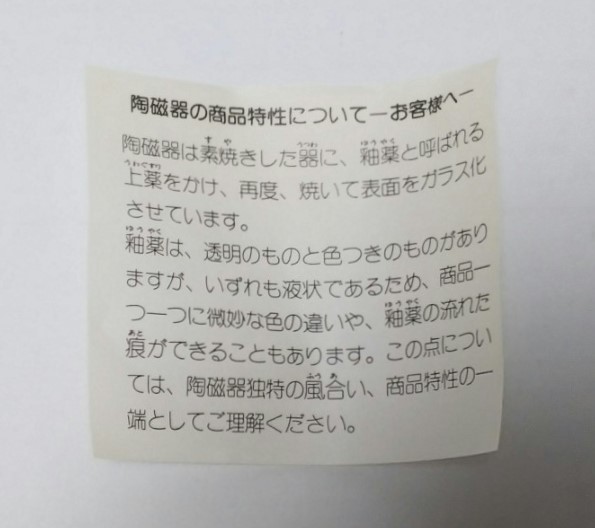 陶磁器の商品特性についてーお客様へー
陶磁器は素焼きした器に、釉薬と呼ばれる
上薬をかけ、再度、焼いて表面をガラス化
させています。
釉薬は、透明のものと色つきのものがあり
ますが、いずれも液状であるため、商品一
つ一つに微妙な色の違いや、釉薬の流れた
痕ができることもあります。この点につい
ては、陶磁器独特の風合い、商品特性の一
端としてご理解ください。